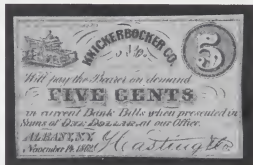 KNICKERBOCKER CO.
5
Will pay the Bearer on demand
FIVE CENTS
in current Bank Bills when presented in
Sums of ONE DOLLAR, at our Office.
ALBANY, N.Y.
November 14, 1862.
Hastings